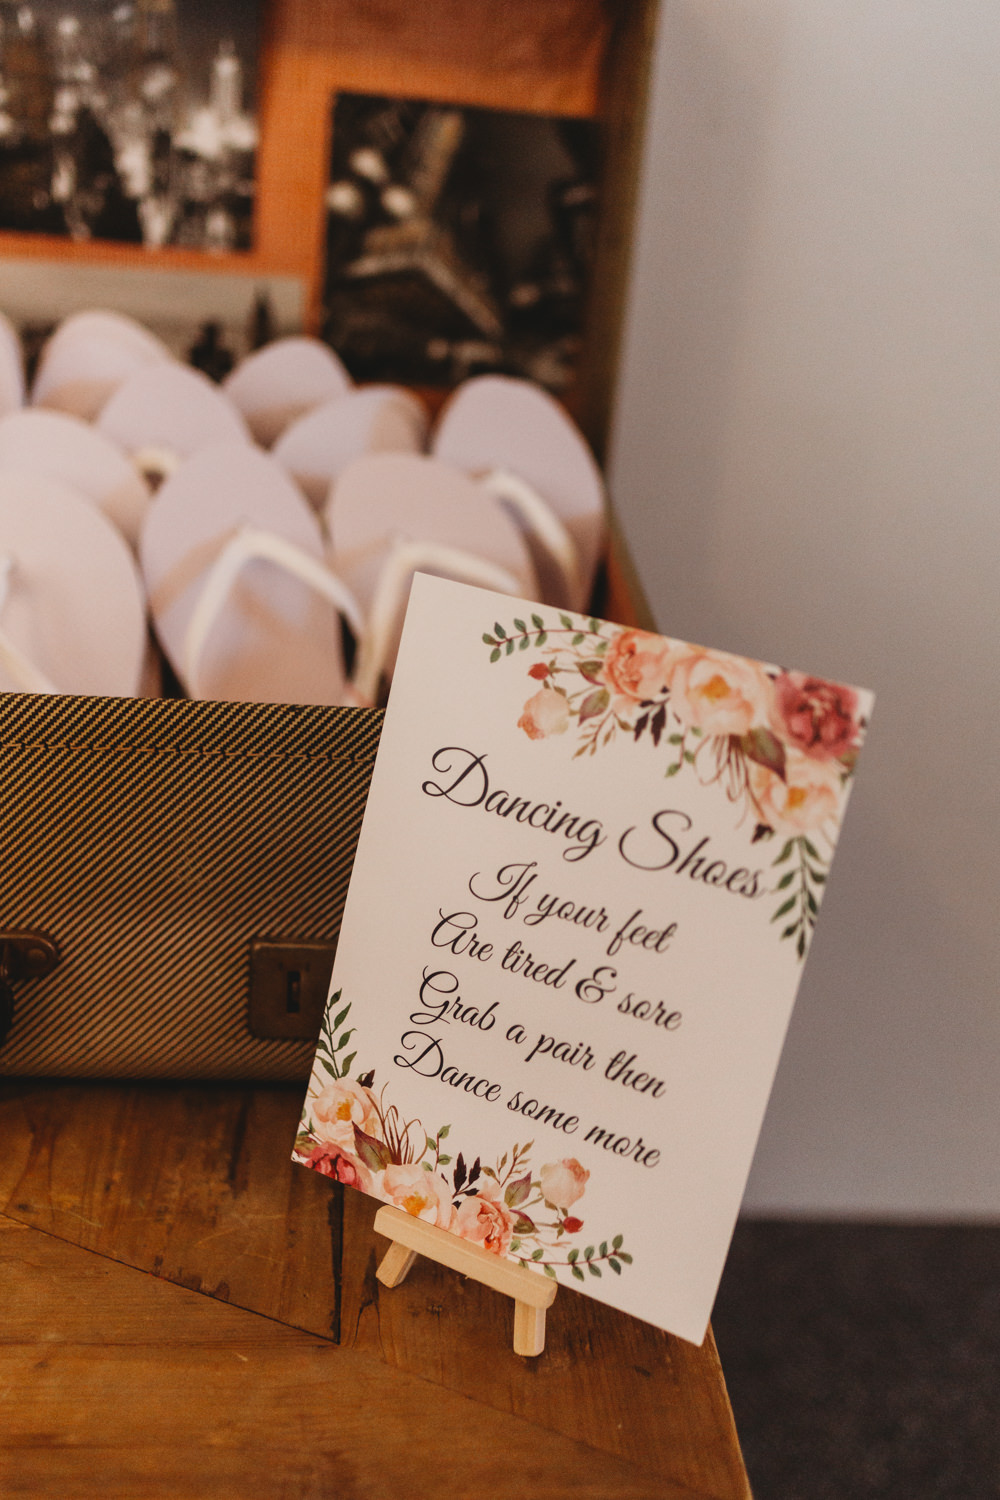 Dancing Shoes
If your feet
Are tired & sore
Grab a pair then
Dance some more